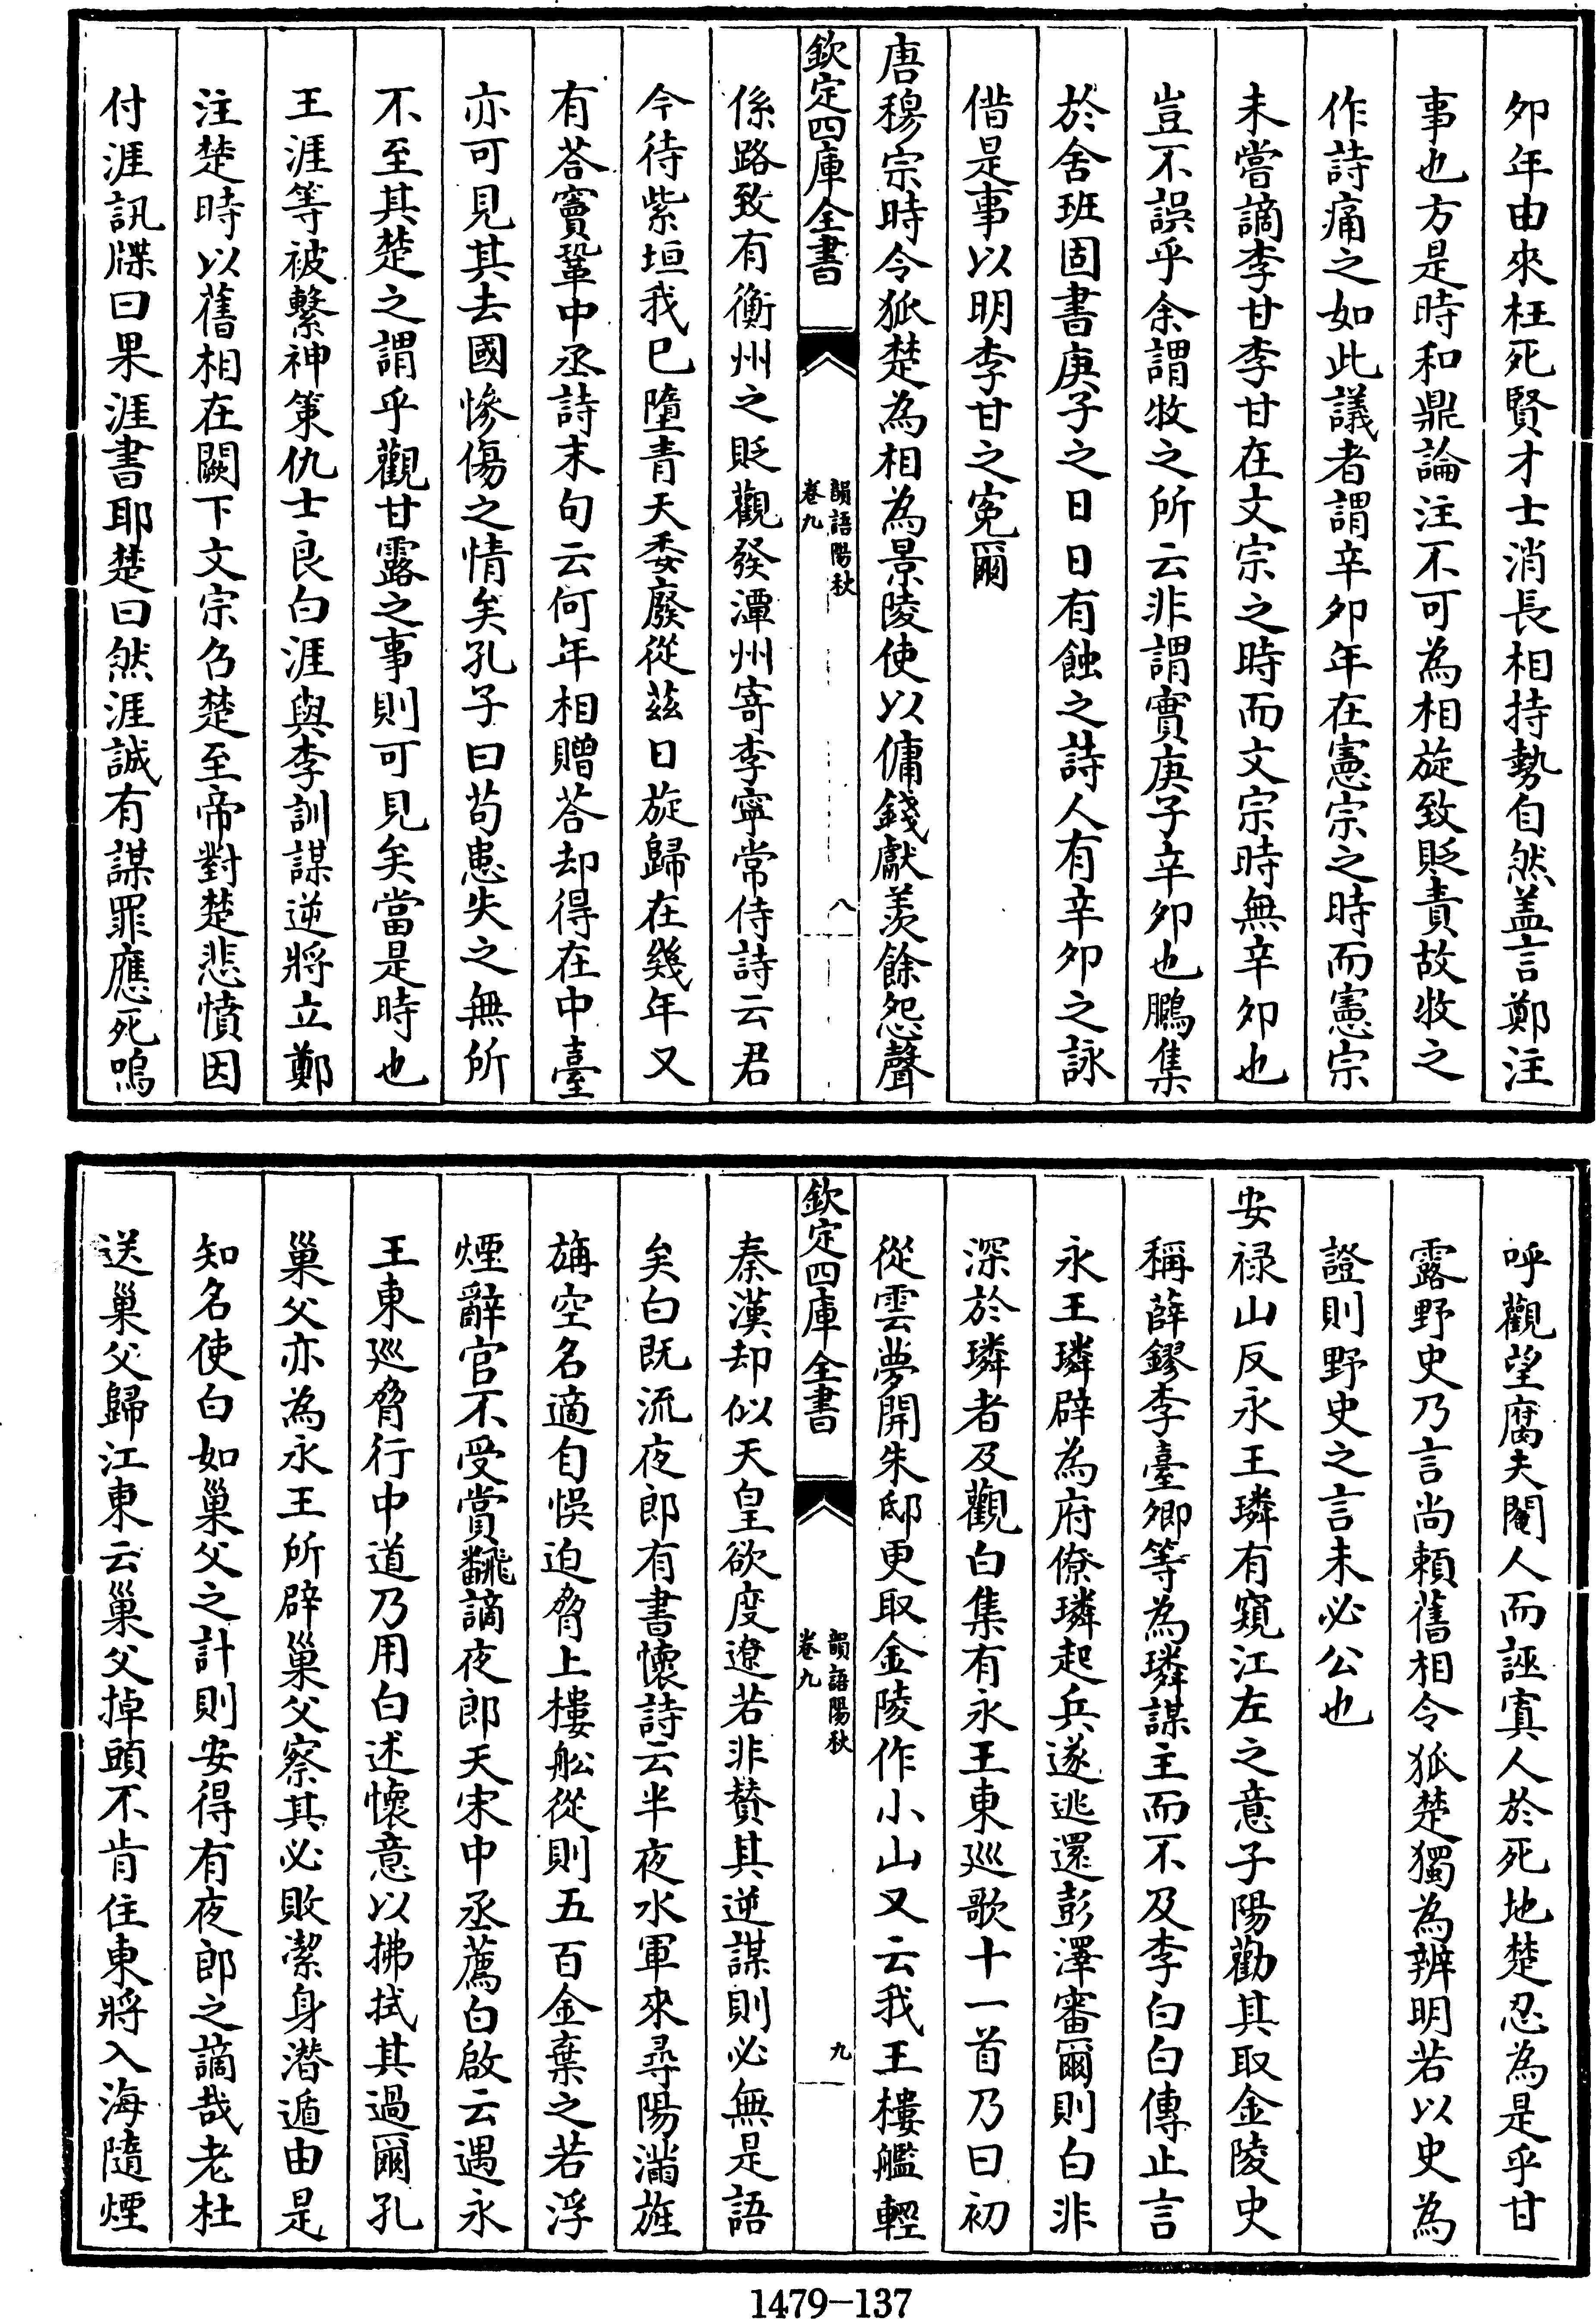 夘年由來枉死賢才士消長相持勢自然盖言鄭注
事也方是時和鼎論注不可為相旋致貶責故牧之
作詩痛之如此議者謂辛夘年在憲宗之時而憲宗
未嘗謫李甘李甘在文宗之時而文宗時無辛夘也
豈不誤乎余謂牧之所云非謂實庚子辛夘也鵩集
於舍班固書庚子之日日有蝕之詩人有辛夘之詠
偕是事以明李甘之寃爾
唐穆宗時令狐楚為相為景陵使以傭錢獻羨餘怨聲
欽定四庫全書
韻語陽秋
卷九
八
係路致有衡州之貶觀發潭州寄李寧常侍詩云君
今待紫垣我已墮青天委廢從兹日旋歸在幾年又
有荅竇鞏中丞詩末句云何年相贈荅却得在中臺
亦可見其去國慘傷之情矣孔子曰苟患失之無所
不至其楚之謂乎觀甘露之事則可見矣當是時也
王涯等被繫神策仇士良白涯與李訓謀逆將立鄭
注楚時以舊相在闕下文宗召楚至帝對楚悲憤因
付涯訊牒曰果涯書耶楚曰然涯誠有謀罪應死嗚
呼觀望腐夫閹人而誣寘人於死地楚忍為是乎甘
露野史乃言尚頼舊相令狐楚獨為辨明若以史為
證則野史之言未必公也
安禄山反永王璘有窺江左之意子陽勸其取金陵史
稱薛鏐李臺卿等為璘謀主而不及李白白傳止言
永王璘辟為府僚璘起兵遂逃還彭澤審爾則白非
深於璘者及觀白集有永王東廵歌十一首乃曰初
從雲夢開朱邸更取金陵作小山又云我王樓艦輕
欽定四庫全書
韻語陽秋
卷九
九
秦漢却似天皇欲度遼若非賛其逆謀則必無是語
矣白既流夜郎有書懷詩云半夜水軍來尋陽滿旌
旃空名適自悞迫脅上樓舩從則五百金棄之若浮
煙辭官不受賞翻謫夜郎天宋中丞薦白啟云遇永
王東廵脅行中道乃用白述懷意以拂拭其過爾孔
巢父亦為永王所辟巢父察其必敗潔身潜遁由是
知名使白如巢父之計則安得有夜郎之謫哉老杜
送巢父歸江東云巢父掉頭不肯住東將入海隨煙
1479-137